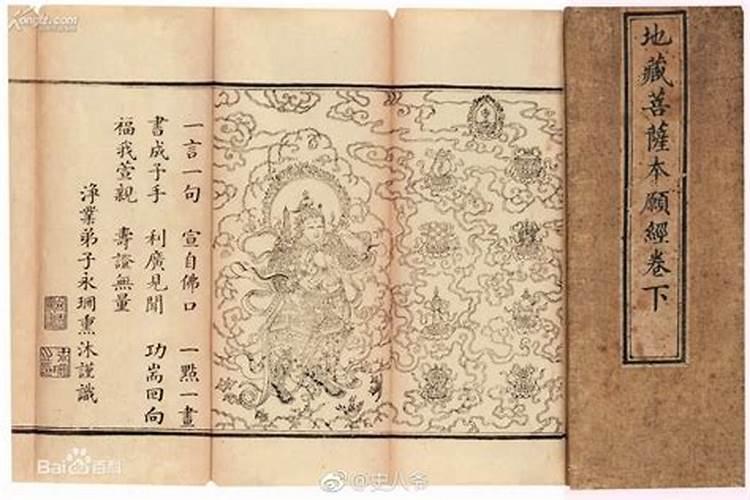 Kongfz.com
地藏菩薩本願經卷下
一言一句 宣自佛口 一點一畫
書成予手 利廣見聞 功耑回向
福我萱親 壽證無量
淨業弟子永熏沐謹識
Bai百科
@史人爷